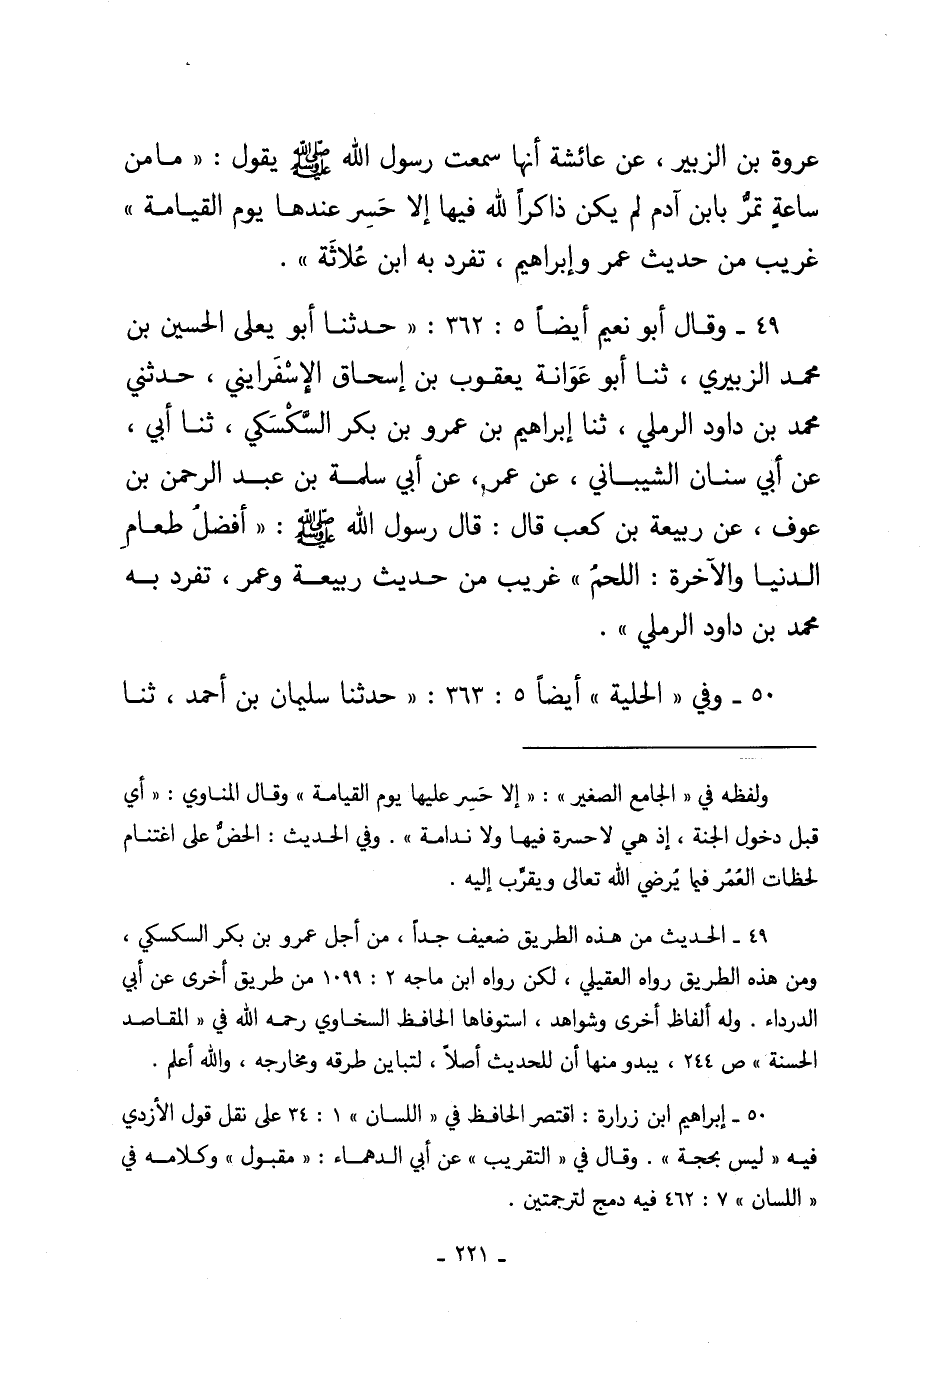 عروة بن الزبير ، عن عائشة أنها سمعت رسول الله ﷺ يقول : « مـامن
ساعةٍ تمرُّ بابن آدم لم يكن ذاكراً لله فيها إلا حَسِر عندهـا يوم القيـامـة »
غريب من حديث عمر وإبراهيم ، تفرد به ابن عُلاثَة » .
٤٩ ـ وقـال أبو نعيم أيضـاً ٥ : ٣٦٢ : « حـدثنـا أبو يعلى الحسين بن
محمـد الزبيري ، ثنـا أبو عَوَانـة يعقـوب بن إسحاق الإسْفَرايني ، حـدثني
محمد بن داود الرملي ، ثنا إبراهيم بن عمرو بن بكر السَّكْسَكي ، ثنـا أبي ،
عن أبي سنـان الشيبـاني ، عن عمر، عن أبي سلمـة بن عبـد الرحمن بن
عوف ، عن ربيعة بن كعب قال : قال رسول الله ﷺ : « أفضلُ طعـامِ
الـدنيـا والآخرة : اللحمُ » غريب من حـديث ربيعـة وعمر ، تفرد بـه
محمد بن داود الرملي » .
٥٠ ـ وفي « الحلية » أيضاً ٥ : ٣٦٣ : « حدثنا سليمان بن أحمد ، ثنـا
ولفظه في « الجامع الصغير » : « إلا حَسِر عليها يوم القيامة » وقال المناوي : « أي
قبل دخول الجنة ، إذ هي لاحسرة فيهـا ولا نـدامـة » . وفي الحـديث : الحضُّ على اغتنـام
لحظات العُمُر فيما يُرضي الله تعالى ويقرِّب إليه .
٤٩ ـ الحـديث من هـذه الطريق ضعيف جـداً ، من أجل عمرو بن بكر السكسكي ،
ومن هذه الطريق رواه العقيلي ، لكن رواه ابن ماجه ٢ : ١٠٩٩ من طريق أخرى عن أبي
الدرداء . وله ألفاظ أخرى وشواهد ، استوفاها الحافـظ السخـاوي رحمـه الله في « المقـاصـد
الحسنة » ص ٢٤٤ ، يبدو منها أن للحديث أصلاً ، لتباين طرقه ومخارجه ، والله أعلم .
٥٠ ـ إبراهيم ابن زرارة : اقتصر الحافظ في « اللسان » ١ : ٣٤ على نقل قول الأزدي
فيـه « ليس بحجـة » . وقـال في « التقريب » عن أبي الـدهمـاء : « مقبول » وكـلامـه في
« اللسان » ٧ : ٤٦٢ فيه دمج لترجمتين .
ـ ٢٢١ ـ